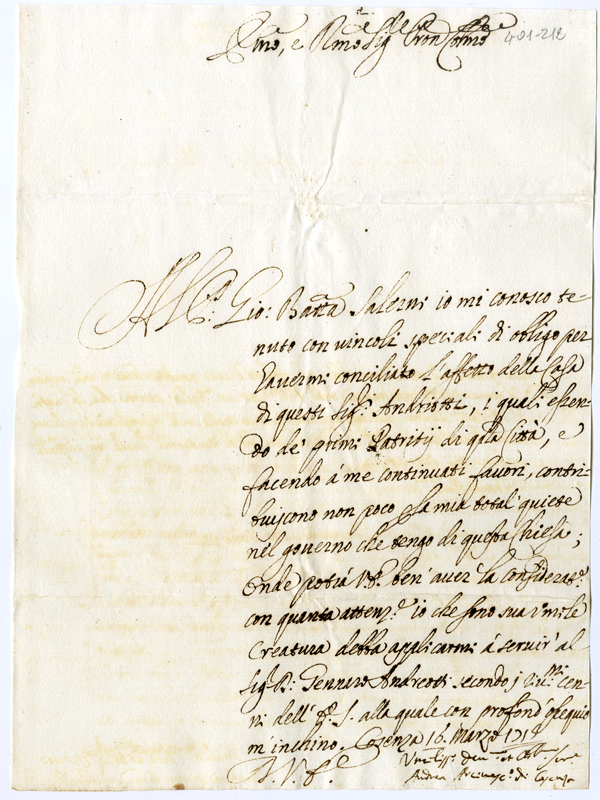 Emo, e Rmo Sig.re Pron Colmo
401-212
Al P. Gio: Batta Salerni io mi conosco te-
nuto con vincoli speciali di obligo per
havermi conciliato l'affetto della Casa
di questi Sig.i Andriotti, i quali essen-
do de' primi Patritij di qsta Città, e
facendo à me continuati favori, contri-
buiscono non poco alla mia total' quiete
nel governo che tengo di questa Chiesa;
Onde potrà V.E. ben' aver' la Considerat.e
con quanta attenz.e io che sono sua umile
Creatura debba applicarmi à servir' al
Sig. D. Gennaro Andreotti secondo i cen-
ni dell' alla quale con profond'ossequio
m'inchino. Cosenza 16. Marzo
D. V. E.
Andrea Arcivesc.o di Cosenza